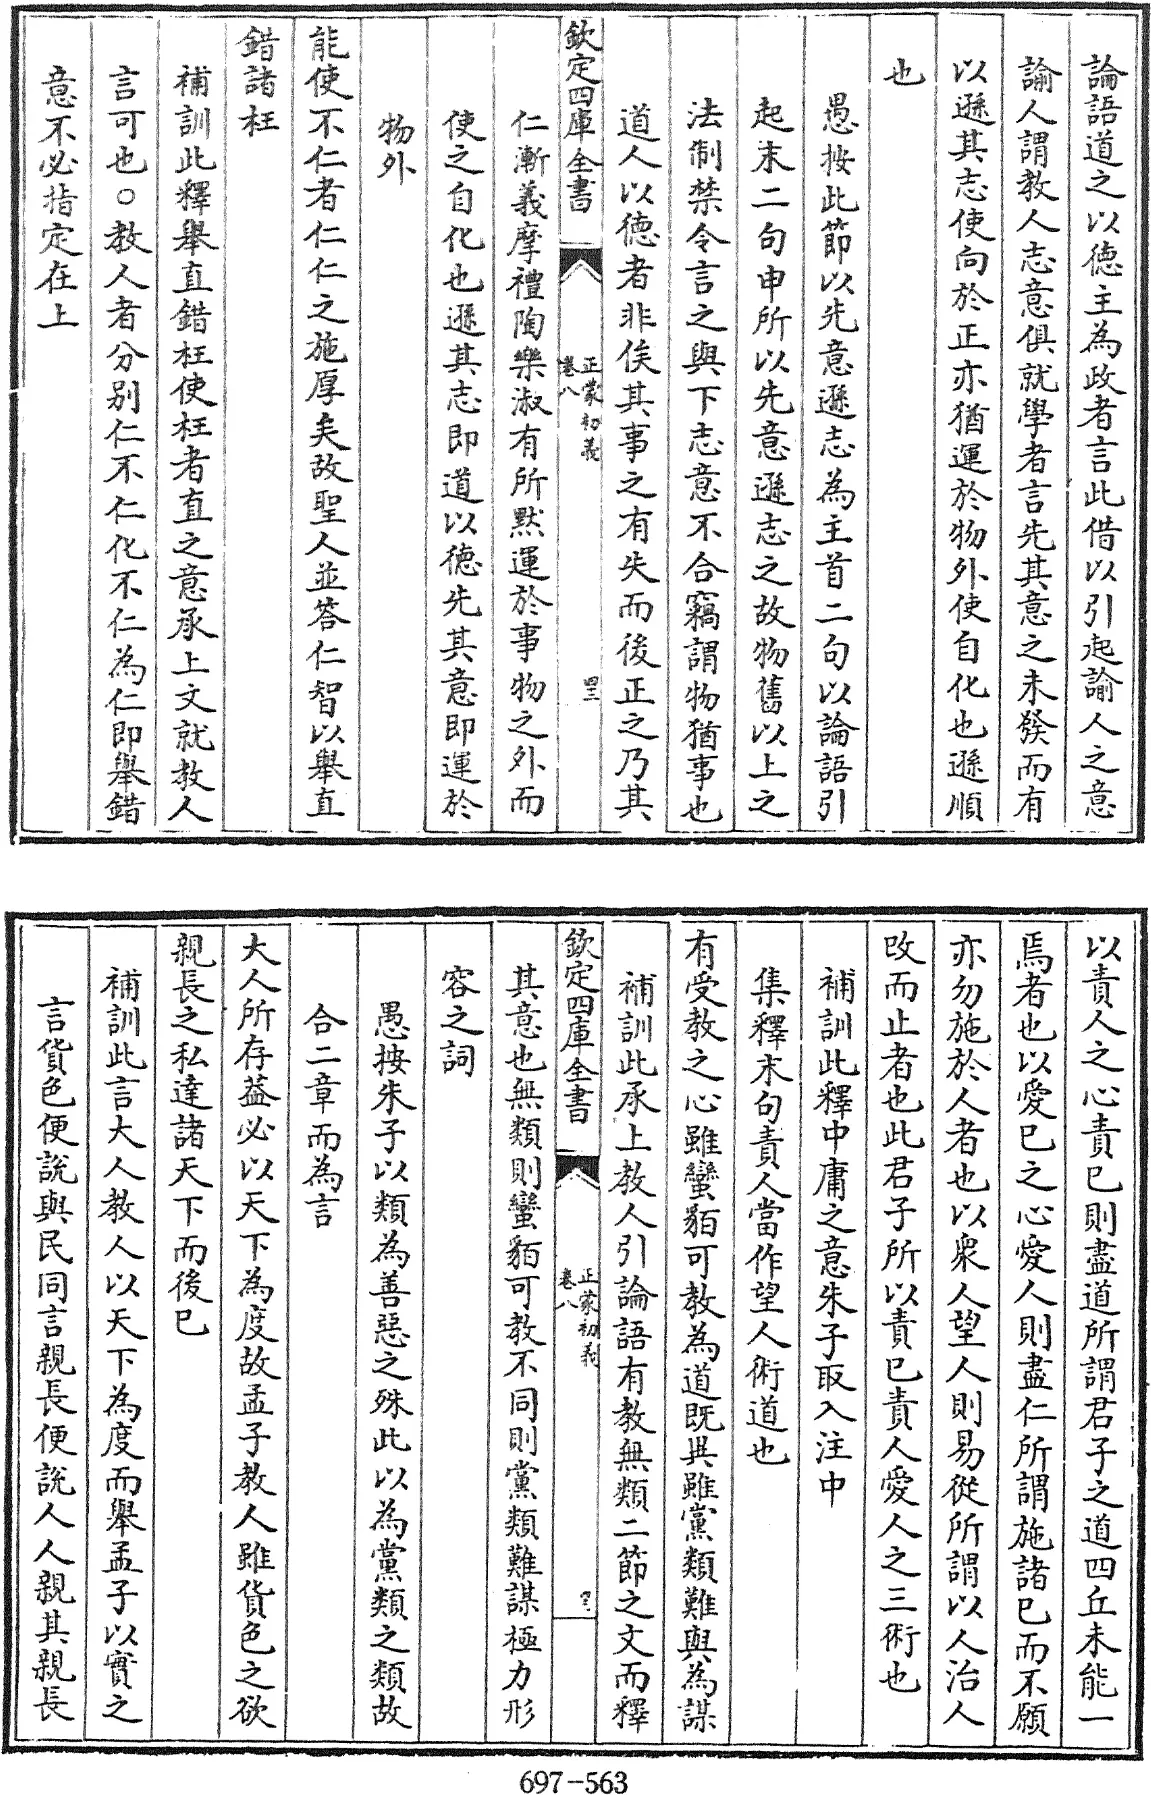 論語道之以徳主為政者言此借以引起諭人之意
諭人謂教人志意俱就學者言先其意之未發而有
以遜其志使向於正亦猶運於物外使自化也遜順
也
愚按此節以先意遜志為主首二句以論語引
起末二句申所以先意遜志之故物舊以上之
法制禁令言之與下志意不合竊謂物猶事也
道人以徳者非俟其事之有失而後正之乃其
欽定四庫全書
正蒙初義
卷八
四三
仁漸義摩禮陶樂淑有所黙運於事物之外而
使之自化也遜其志即道以徳先其意即運於
物外
能使不仁者仁仁之施厚矣故聖人並答仁智以舉直
錯諸枉
補訓此釋舉直錯枉使枉者直之意承上文就教人
言可也○教人者分别仁不仁化不仁為仁即舉錯
意不必指定在上
以責人之心責已則盡道所謂君子之道四丘未能一
焉者也以愛已之心愛人則盡仁所謂施諸已而不願
亦勿施於人者也以衆人望人則易從所謂以人治人
改而止者也此君子所以責已責人愛人之三術也
補訓此釋中庸之意朱子取入注中
集釋末句責人當作望人術道也
有受教之心雖蠻貊可教為道既異雖黨類難與為謀
補訓此承上教人引論語有教無類二節之文而釋
欽定四庫全書
正蒙初義
卷八
其意也無類則蠻貊可教不同則黨類難謀極力形
容之詞
愚按朱子以類為善惡之殊此以為黨類之類故
合二章而為言
大人所存葢必以天下為度故孟子教人雖貨色之欲
親長之私達諸天下而後已
補訓此言大人教人以天下為度而舉孟子以實之
言貨色便說與民同言親長便說人人親其親長
697-563